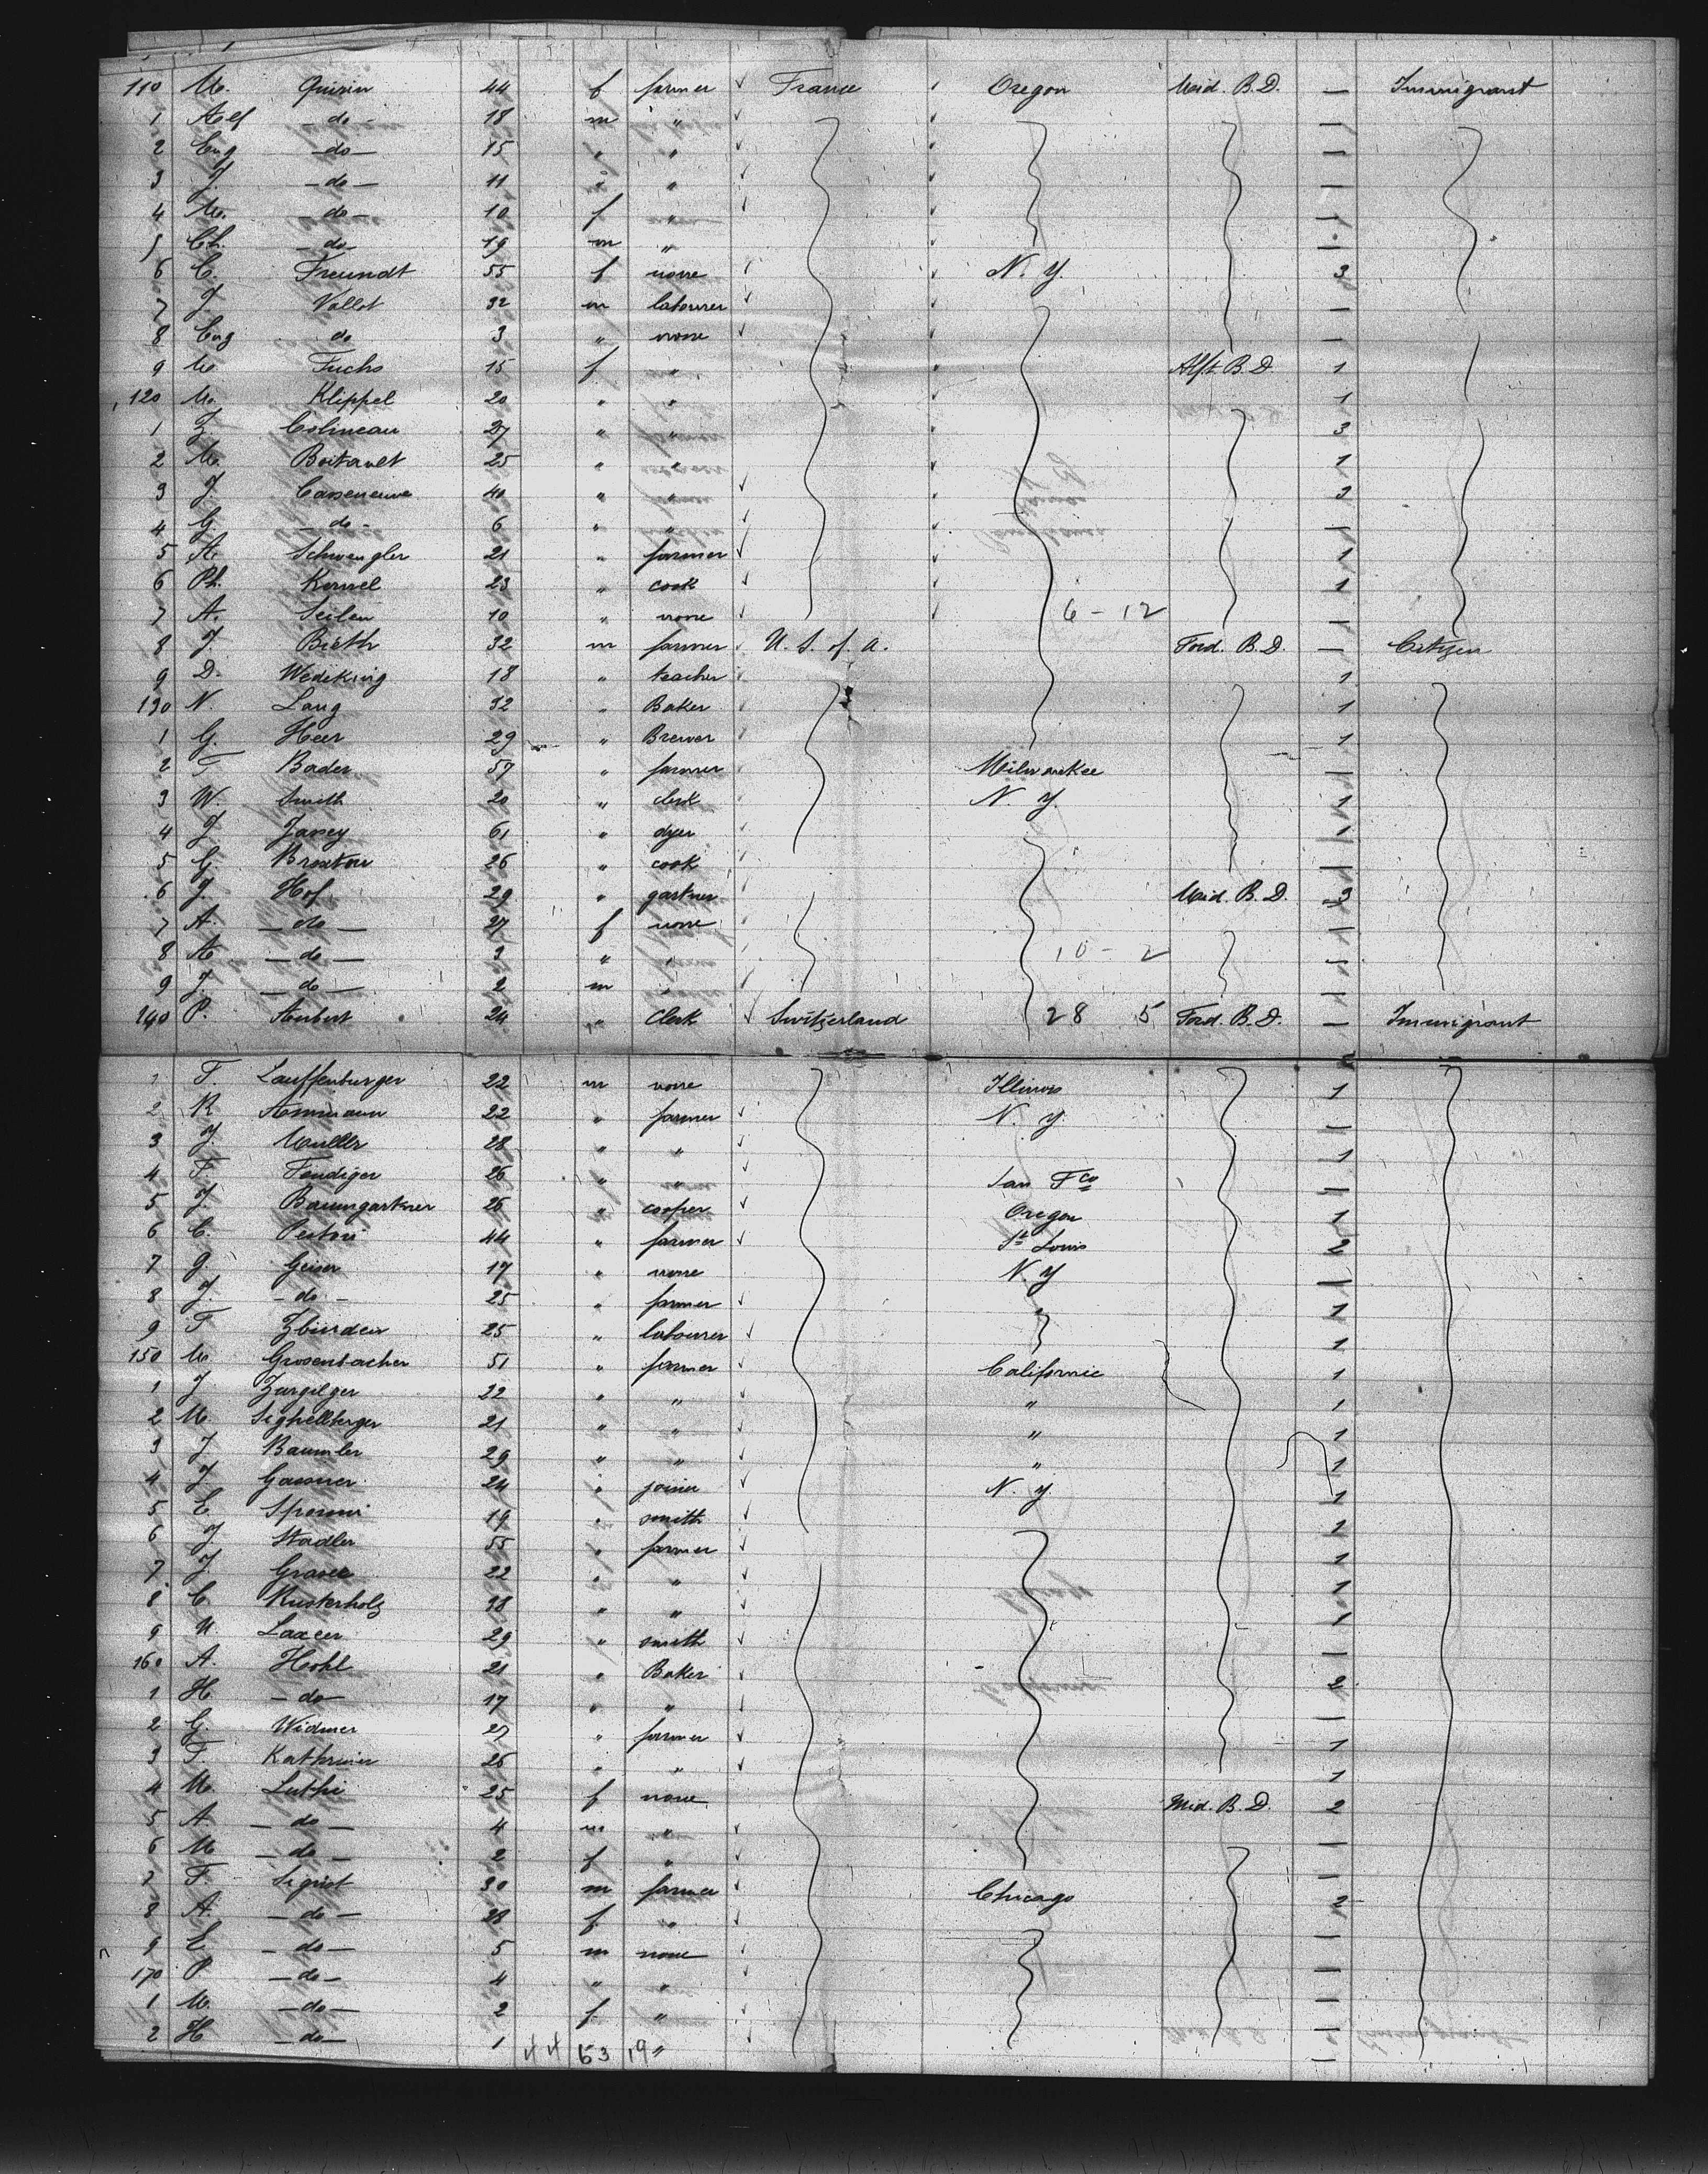 110 M. Quirin 44 f farmer ✓ France ✓ Oregon Mid. B.D. — Immigrant
1 Alf — do — 18 m " ✓
2 Eug — do — 15 " " ✓ —
3 J. — do — 11 " " ✓ —
4 M. — do — 10 f " ✓ —
5 Ch. — do — 19 m " —
6 C. Freundt 55 f none N. Y. 3
7 J. Vallot 32 m labourer ✓ —
8 Eug do 3 " none ✓ —
9 M. Fuchs 15 f " Aft B.D. 1
120 M. Klippel 20 " " 1
1 Z. Colineau 27 " " 3
2 M. 25 " " 1
3 J. Casseneuve 40 " " ✓ 3
4 G. — do — 6 " " ✓ —
5 A. Schwengler 21 " farmer ✓ 1
6 Ph. 23 " cook ✓ 1
7 A. Seilen 10 " none ✓ 6 – 12 —
8 J. Bieth 32 m farmer U. S. of a. Ford. B.D. — Citizen
9 D. Wedeking 18 " teacher 1
130 N. Lang 32 " Baker 1
1 G. Heer 29 " Brewer 1
2 F Bader 57 " farmer Milwaukee —
3 W. Smith 20 " clerk N. Y. 1
4 J. 61 " dyer 1
5 G Broxton 26 " cook —
6 J. Hof 29 " gartner Mid. B.D. 3
7 A. — do — 27 f none —
8 A — do — 3 " " 10 – 2 —
9 J. — do — 2 m " —
140 P. Aubert 24 " Clerk ✓ Switzerland 28 5 Ford. B.D. — Immigrant
1 F. Lauffenburger 22 m none Illinois 1
2 R Ammann 22 " farmer ✓ N. Y. —
3 J. Muller 28 " " ✓ 1
4 F. Fendiger 26 " " ✓ San Fco —
5 J. Baumgartner 26 " cooper ✓ Oregon 1
6 C. 44 " farmer ✓ St Louis 2
7 G. Geiser 17 " none N. Y —
8 J. — do — 25 " farmer ✓ 1
9 F Zbinden 25 " labourer ✓ 1
150 M. Grosenbacher 51 " farmer ✓ Californie 1
1 J. 22 " " ✓ " 1
2 M. 21 " " ✓ " 1
3 J Baumler 29 " " ✓ " 1
4 J. Gassner 24 " joiner ✓ N. Y. 1
5 E. 19 " smith ✓ 1
6 J Stadler 55 " farmer ✓ 1
7 J. 22 " " ✓ 1
8 C Kusterholz 38 " " ✓ 1
9 29 " smith ✓ —
160 A. Hohl 21 " Baker ✓ 2
1 H. — do — 17 " " ✓ —
2 G. Widmer 27 " farmer ✓ 1
3 F. Kathriner 26 " " ✓ 1
4 M. Luthi 25 f none Mid. B.D. 2
5 A — do — 4 m " ✓ —
6 M — do — 2 f " ✓ —
7 F. Sigrist 30 m farmer ✓ Chicago 2
8 A. — do — 28 f " ✓ —
9 E — do — 5 m none —
170 P. — do — 4 " " —
1 M. — do — 2 f " —
2 H — do — 1 " —
44 63 19